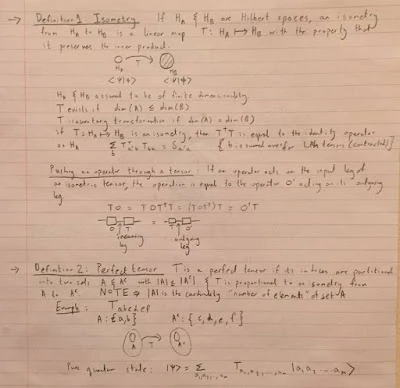 → Definition 1 Isometry: If H_A & H_B are Hilbert spaces, an isometry
from H_A to H_B is a linear map T: H_A ↦ H_B with the property that
it preserves the inner product.
T
H_A H_B
<ψ|φ> <ψ|φ>
H_A & H_B assumed to be of finite dimensionality
T exists if dim(A) ≤ dim(B)
T is unitary transformation if dim(A) = dim(B)
if T: H_A ↦ H_B is an isometry, then T†T is equal to the identity operator
on H_A Σ_b T†_{a'b} T_{ba} = δ_{a'a} { b is summed over for both tensors (contracted) }
Pushing an operator through a tensor: If an operator acts on the input leg of
an isometric tensor, the operation is equal to the operator O' acting on its outgoing
leg.
TO = TOT†T = (TOT†)T = O'T
O T = T O'
incoming leg outgoing leg
→ Definition 2: Perfect tensor T is a perfect tensor if its indices are partitioned
into two sets A & A^c with |A| ≤ |A^c| & T is proportional to an isometry from
A to A^c. NOTE ⇒ |A| is the cardinality "number of elements" of set A
Example: T_{abcdef}
A: {a,b} A^c: {c,d,e,f}
A T A^c
Pure quantum state: |ψ> = Σ_{a_1,a_2,...,a_n} T_{a_1 a_2 ... a_n} |a_1 a_2 ... a_n>